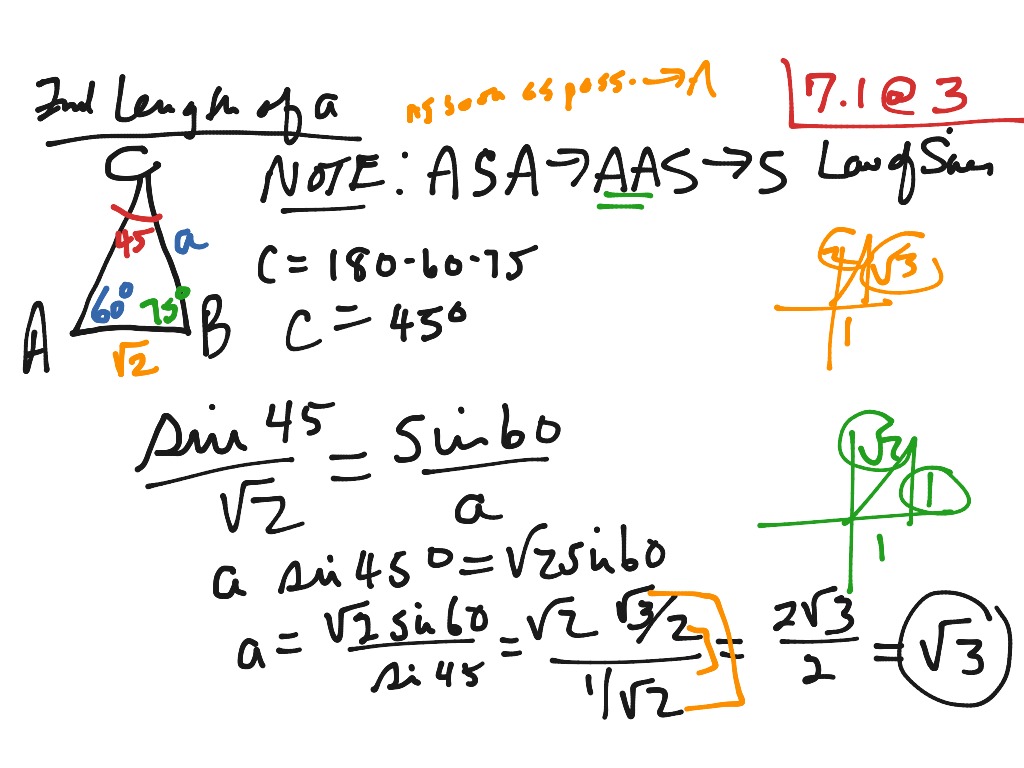 Find Length of a
as soon as poss. → A
7.1 @ 3
NOTE: ASA → AAS → S
Law of Sines
C
45
a
60°
75°
A
B
√2
C = 180-60-75
C = 45°
2
√3
1
sin 45/√2 = sin60/a
√2
1
1
a sin 45° = √2 sin60
a = √2 sin60/sin 45 = √2 √3/2/1/√2 = 2√3/2 = √3